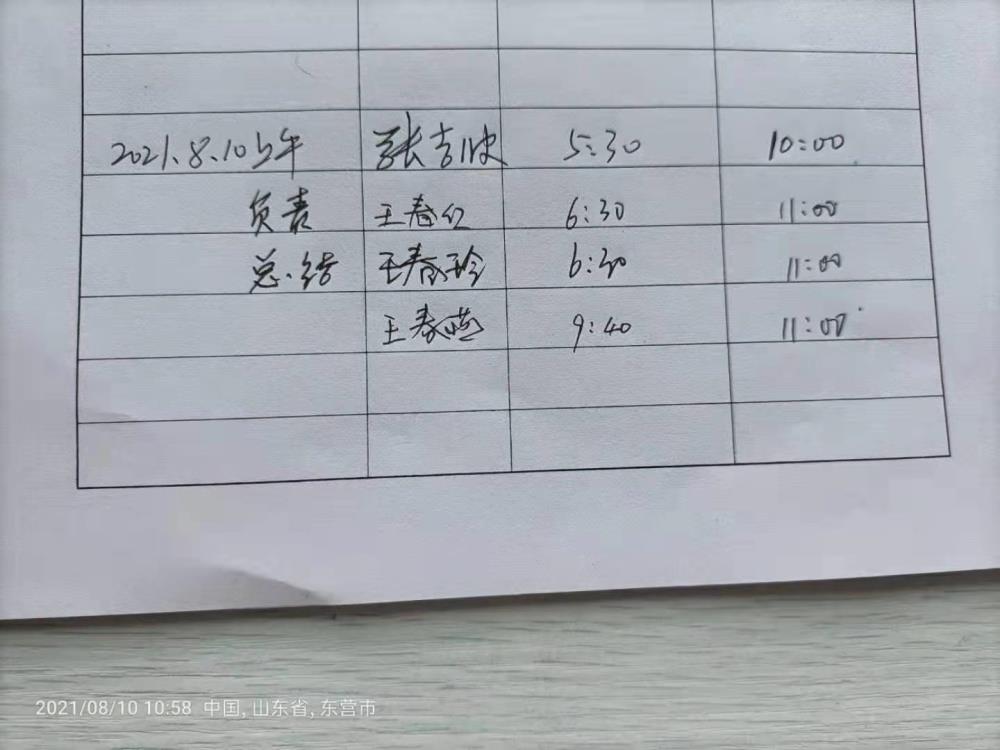 2021.8.10上午 张吉波 5:30 10:00
负责 王春红 6:30 11:00
总结 王春珍 6:30 11:00
王春燕 9:40 11:00
2021/08/10 10:58 中国, 山东省, 东营市